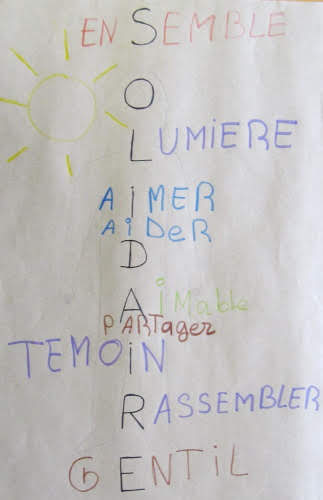 ENSEMBLE
O
LUMiERE
AIMER
AiDeR
D
AiMable
PARTager
TEMOiN
RASSEMBLER
GENTiL